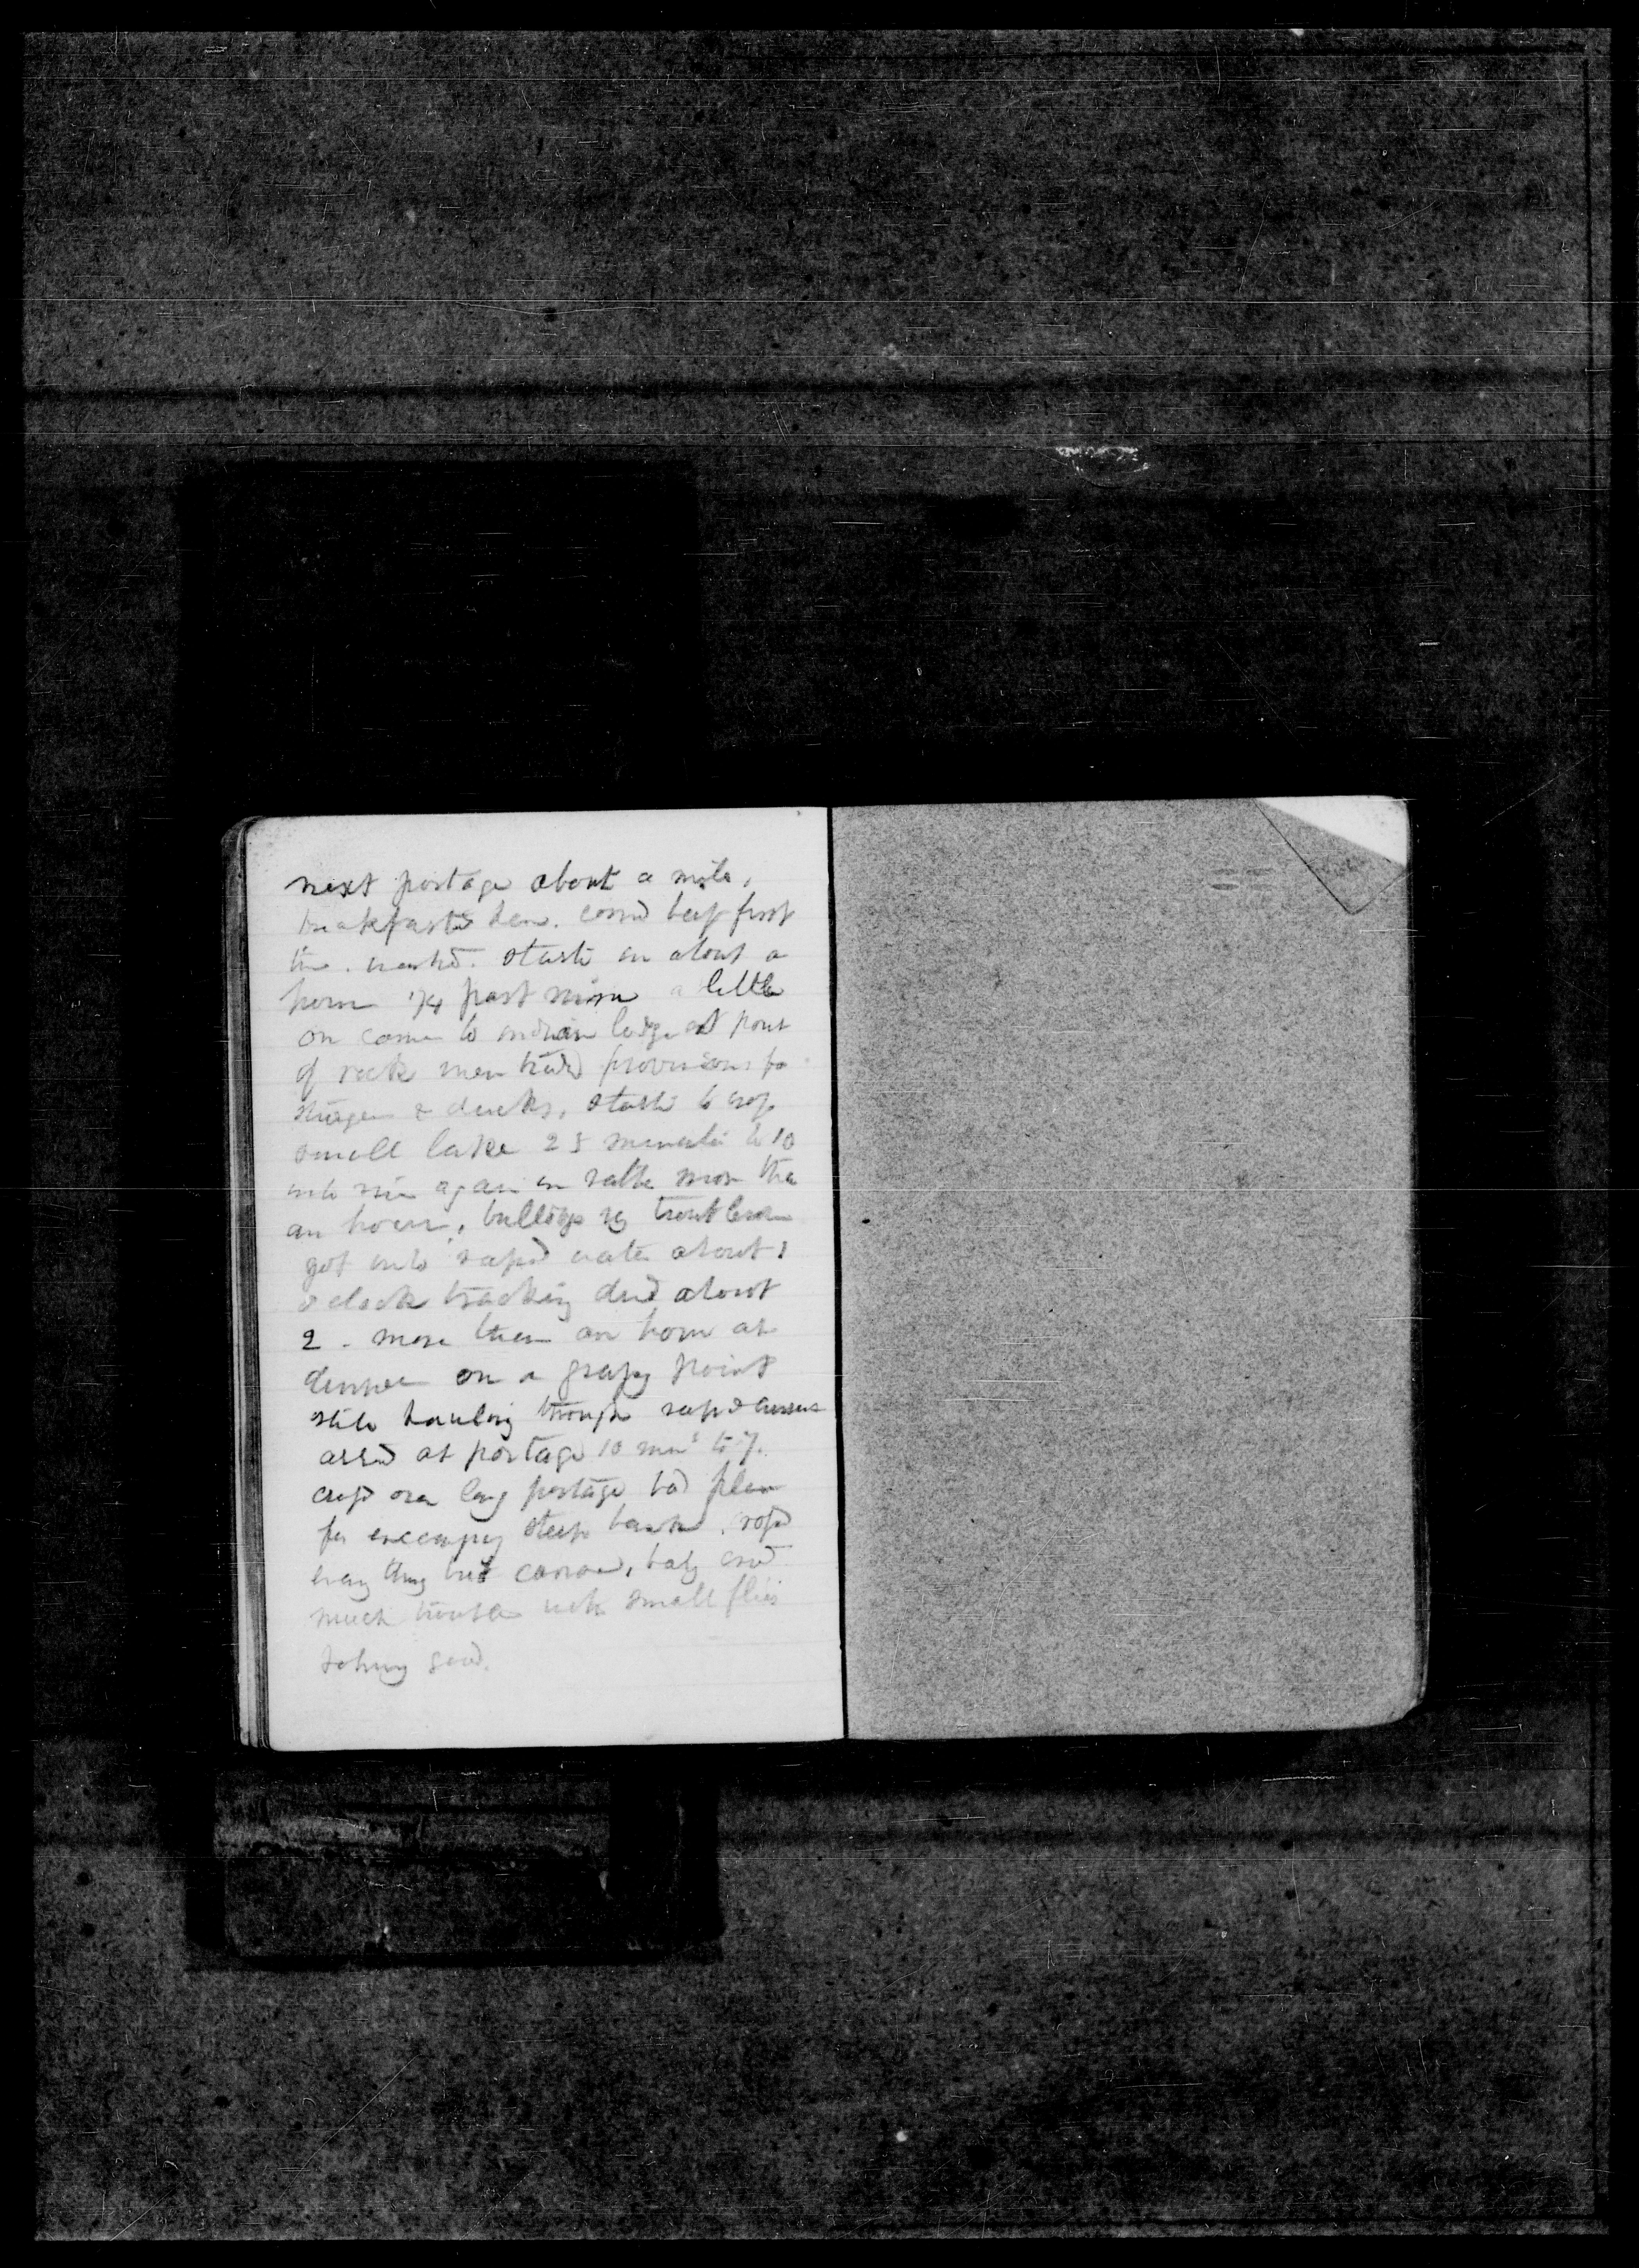 next portage about a mile,
breakfasted here. corned beef first
time. washed. started in about a
hour 1/4 past nine a little
on came to indian lodge at point
of rock men traded provisions for
sturgeon & ducks, started to cross
small lake 25 minutes to 10
into river again in rather more than
an hour, bulldogs very troublesome
got into rapid water about 1
o clock tracking dined about
2 - more than an hour at
dinner on a grassy point
still hauling through rapid currents
arrd at portage 10 mins to 7.
crossed over long portage bad place
for encamping steep bank.
every thing but canoes, baby cried
much trouble with small flies
Johnny good.